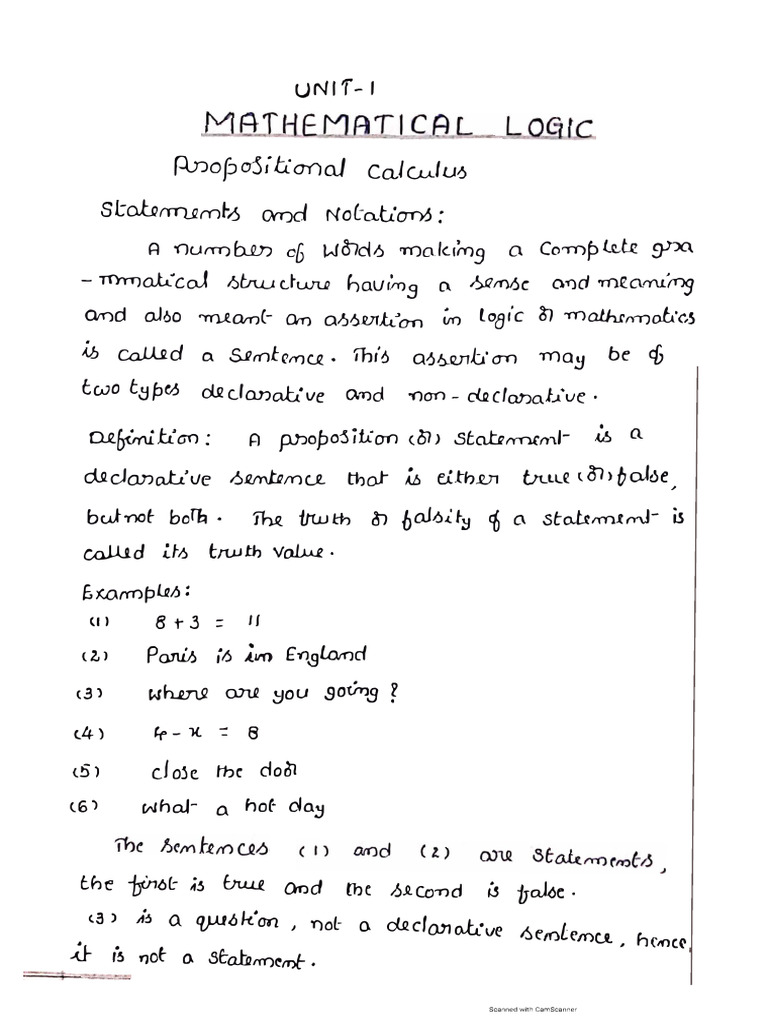 UNIT-1
MATHEMATICAL LOGIC
Propositional Calculus
Statements and Notations:
A number of words making a Complete gra
-mmatical structure having a sense and meaning
and also meant an assertion in logic or mathematics
is called a Sentence. This assertion may be of
two types declarative and non-declarative.
Definition: A proposition (or) statement is a
declarative sentence that is either true (or) false,
but not both. The truth or falsity of a statement is
called its truth value.
Examples:
(1) 8 + 3 = 11
(2) Paris is in England
(3) where are you going?
(4) 4 - x = 8
(5) close the door
(6) what a hot day
The sentences (1) and (2) are statements,
the first is true and the second is false.
(3) is a question, not a declarative sentence, hence
it is not a statement.
Scanned with CamScanner